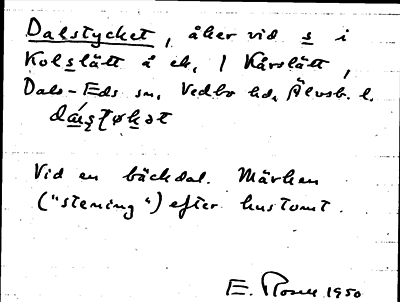 Dalstycket, åker vid s i
Kolslätt å ek. 1 Kårslätt,
Dals-Eds sn, Vedbo hd, Älvsb. l.
Vid en bäckdal. Märken
("stening") efter hustomt.
E. Rosen 1950